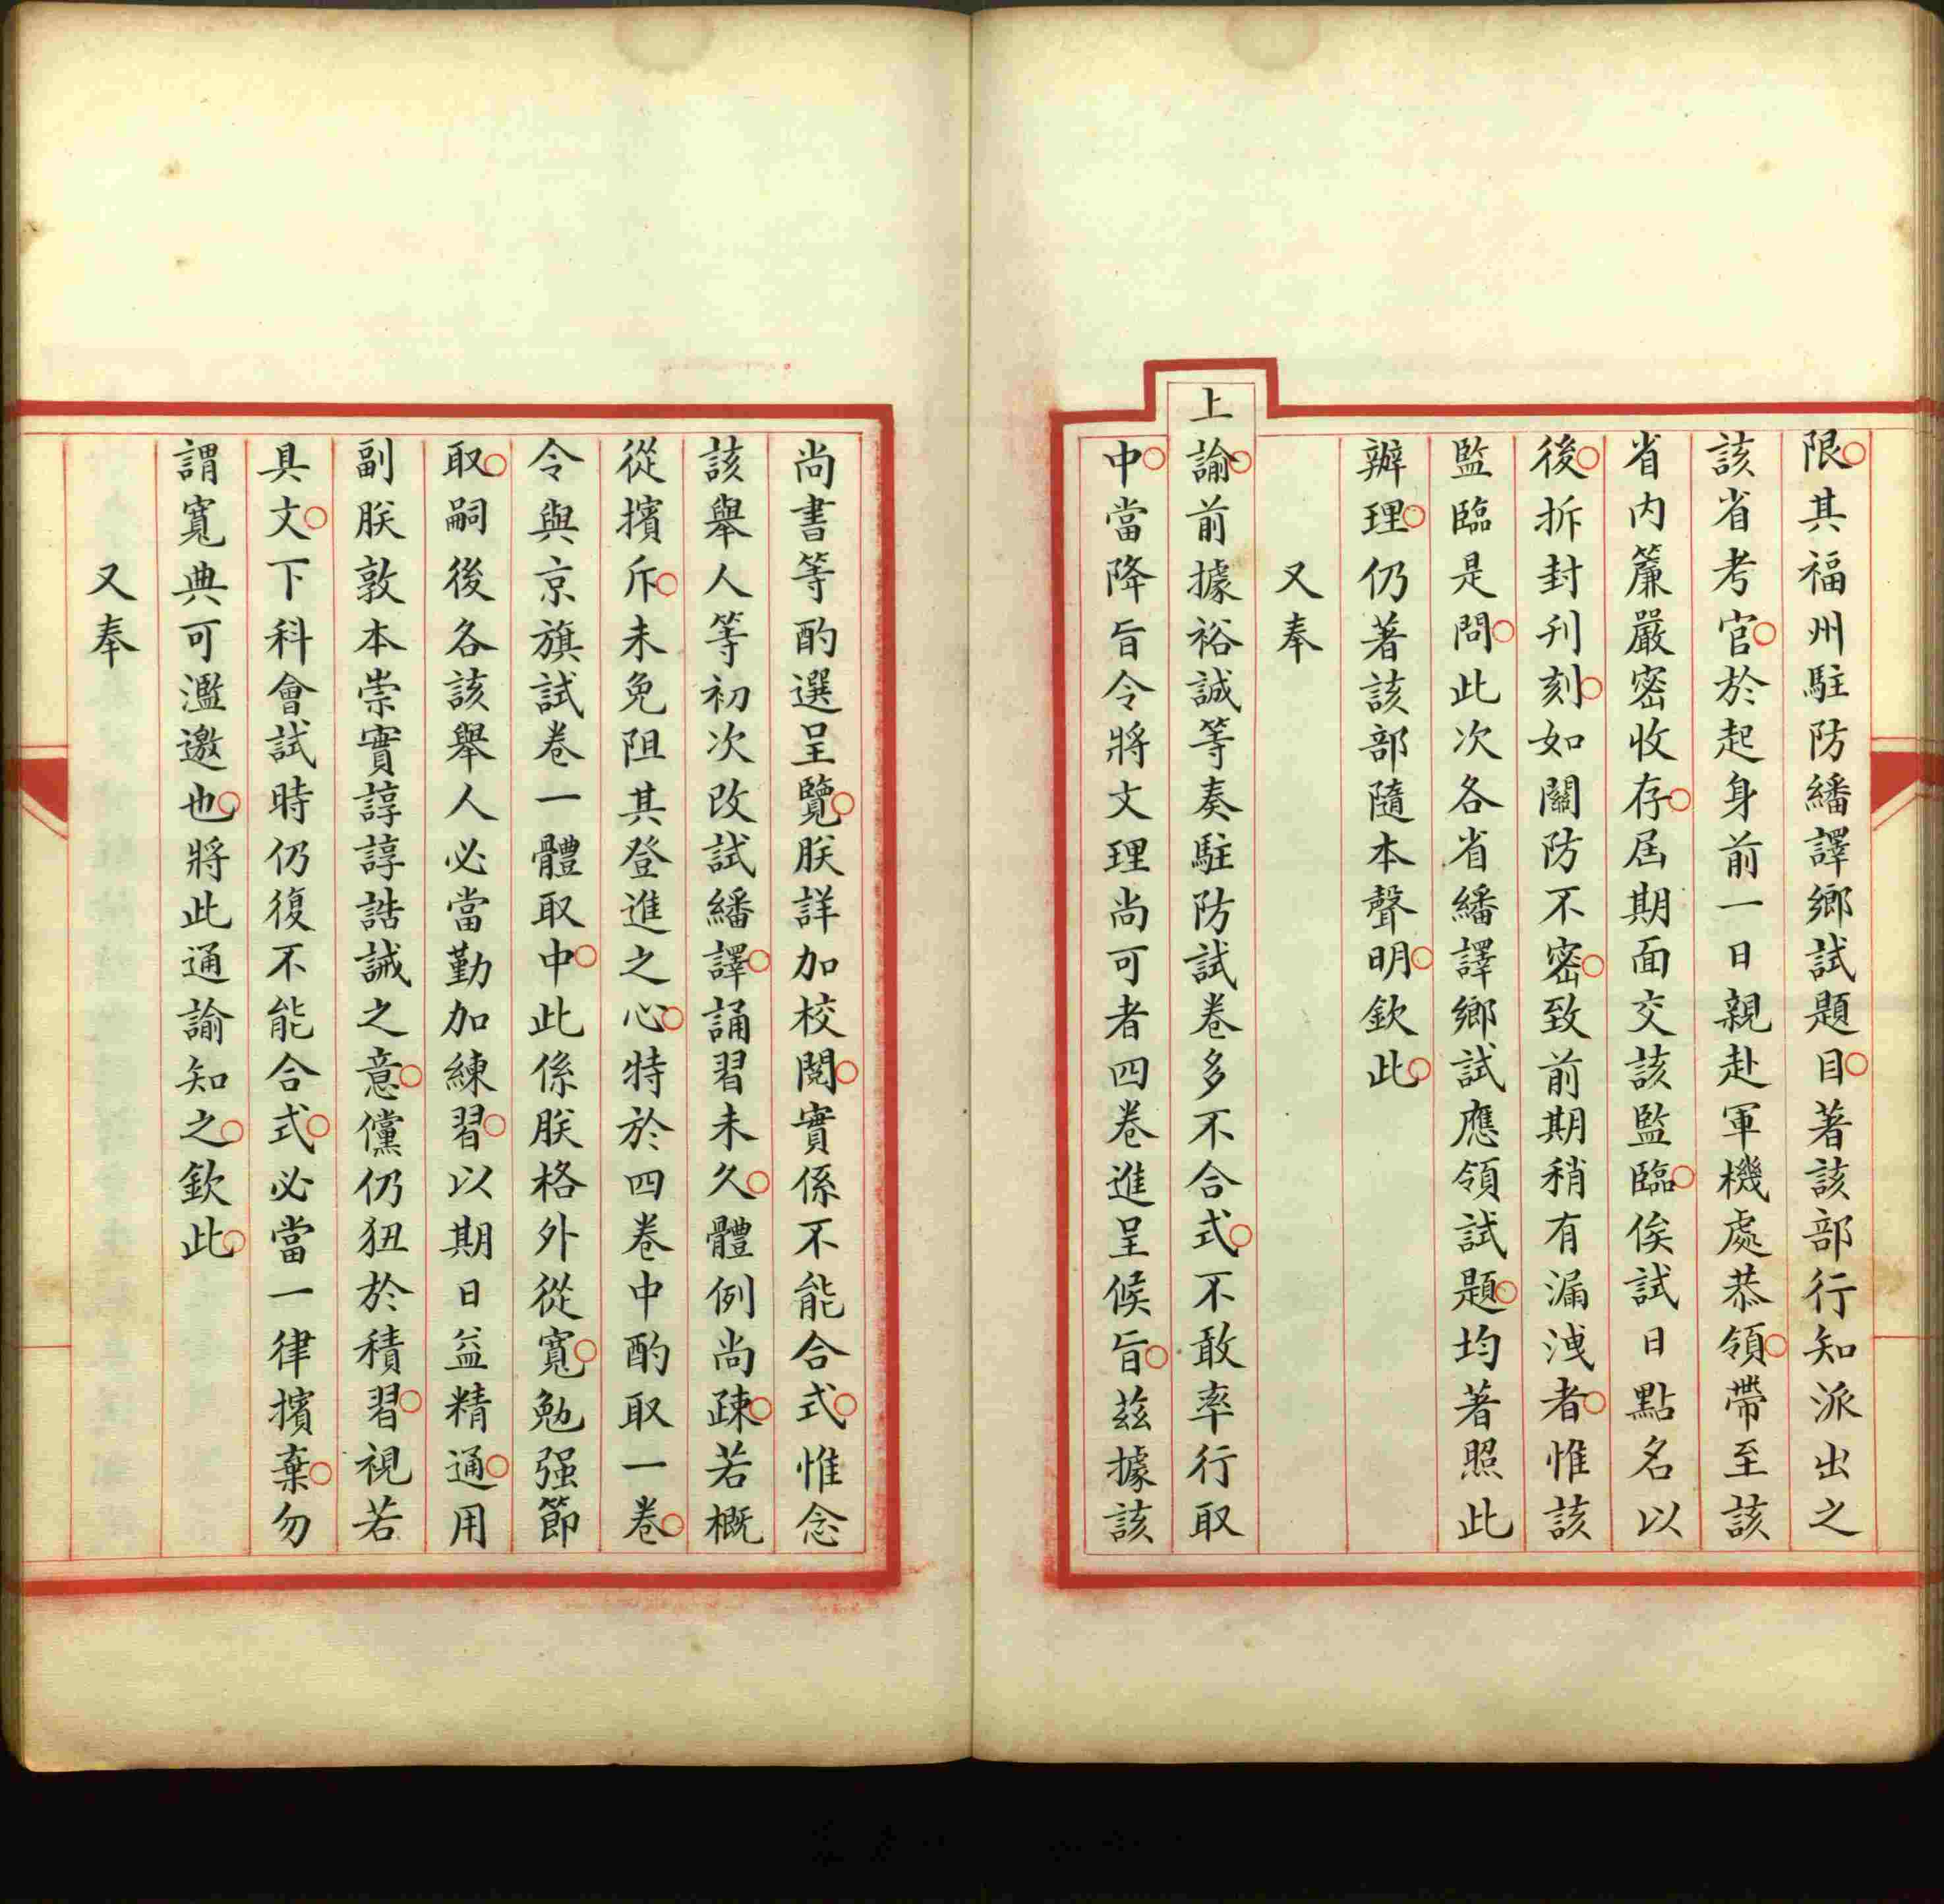 限其福州駐防繙譯鄉試題目著該部行知派出之
該省考官於起身前一日親赴軍機處恭領帶至該
省内簾嚴密收存屆期面交該監臨俟試日點名以
後拆封刊刻如關防不密致前期稍有漏洩者惟該
監臨是問此次各省繙譯鄉試應領試題均著照此
辦理仍著該部隨本聲明欽此
又奉
上諭前據裕誠等奏駐防試卷多不合式不敢率行取
中當降旨令將文理尚可者四卷進呈候旨茲據該
尚書等酌選呈覽朕詳加校閱實係不能合式惟念
該舉人等初次改試繙譯誦習未久體例尚疎若概
從擯斥未免阻其登進之心特於四卷中酌取一卷
令與京旗試卷一體取中此係朕格外從寬勉强節
取嗣後各該舉人必當勤加練習以期日益精通用
副朕敦本崇實諄諄誥誡之意儻仍狃於積習視若
具文下科會試時仍復不能合式必當一律擯棄勿
謂寬典可濫邀也將此通諭知之欽此
又奉